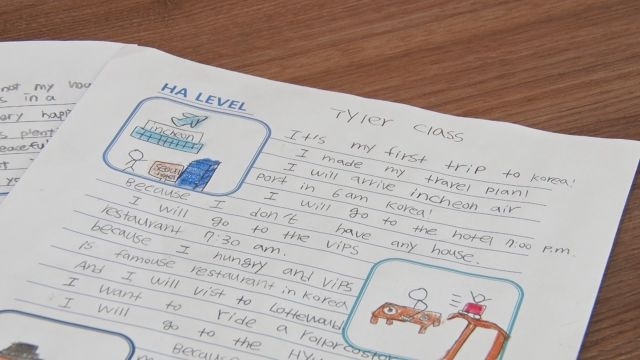 not my
s in a
ory happ
s plent
eaceful
HA LEVEL
Tyler class
incheon
It's my first trip to korea!
I made my travel plan!
I will arrive incheon air
port in 6am korea!
I will go to the hotel 7:00 p.m.
Because I don't have any house.
I will go to the VIPS
restaurant 7:30 am.
because I hungry and VIPS
is famouse restaurant in korea
And I will visit to Lottewoul
I want to ride a rollorcostor
I will go to the HY
Because